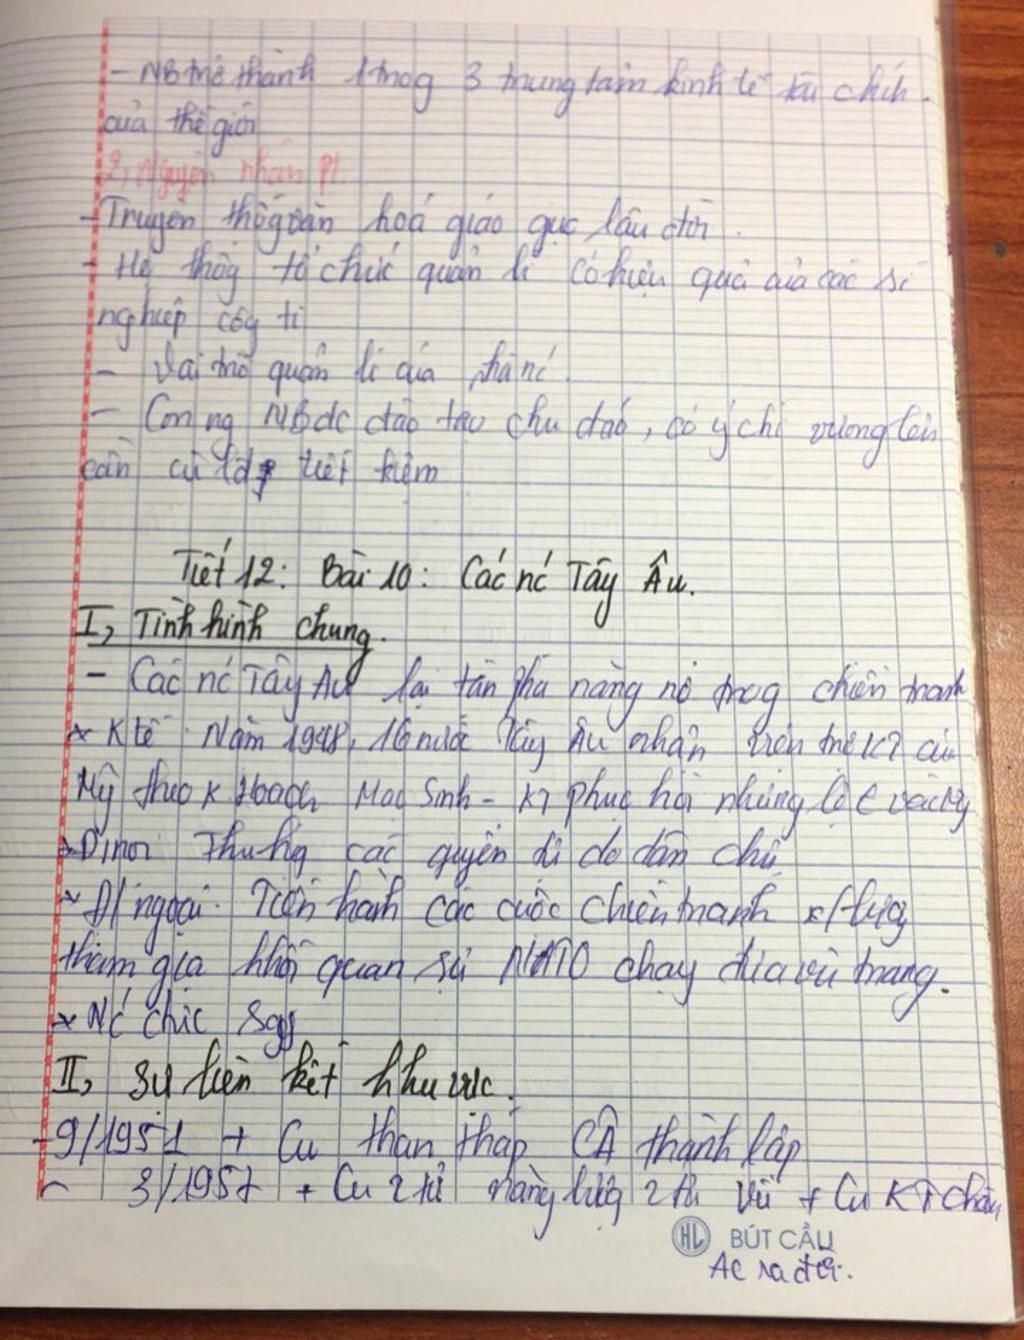 - NB trở thành 1 trog 3 trung tâm kinh tế tài chih
của thế giới
2, Nguyên nhân pt.
- Truyền thốg văn hoá giáo dục lâu đời.
- Hệ thốg tổ chức quản lí có hiệu quả của các xí
nghiệp côg ti
- Vai trò quản lí của nhà nc
- Con ng NB dc đào tạo chu đáo, có ý chí vương lên
cần cù lđ, tiết kiệm
Tiết 12: Bài 10: Các nc Tây Âu.
I, Tình hình chung.
- Các nc Tây Âu lại tàn phá nặng nề trog chiến tranh
* K tế: Năm 1948, 16 nước Tây Âu nhận viện trợ KT của
Mỹ theo K Hoạch Mac San - KT phục hồi nhưng lệ t vào Mỹ
các quyền tự do dân chủ
* Đ/ngoại. Tiến hành các cuộc chiến tranh x/lược
tham gia khối quan sự NATO chạy đua vũ trang.
* Nc Đức sgk
II, Sự liên kết khu vực.
- 9/1951 + Cu than thép CÂ thành lập
- 3/1957 + Cu 2 tử năng lượg 2 tử + Cu KT châu
HL BÚT CẦU
Âu ra đời.